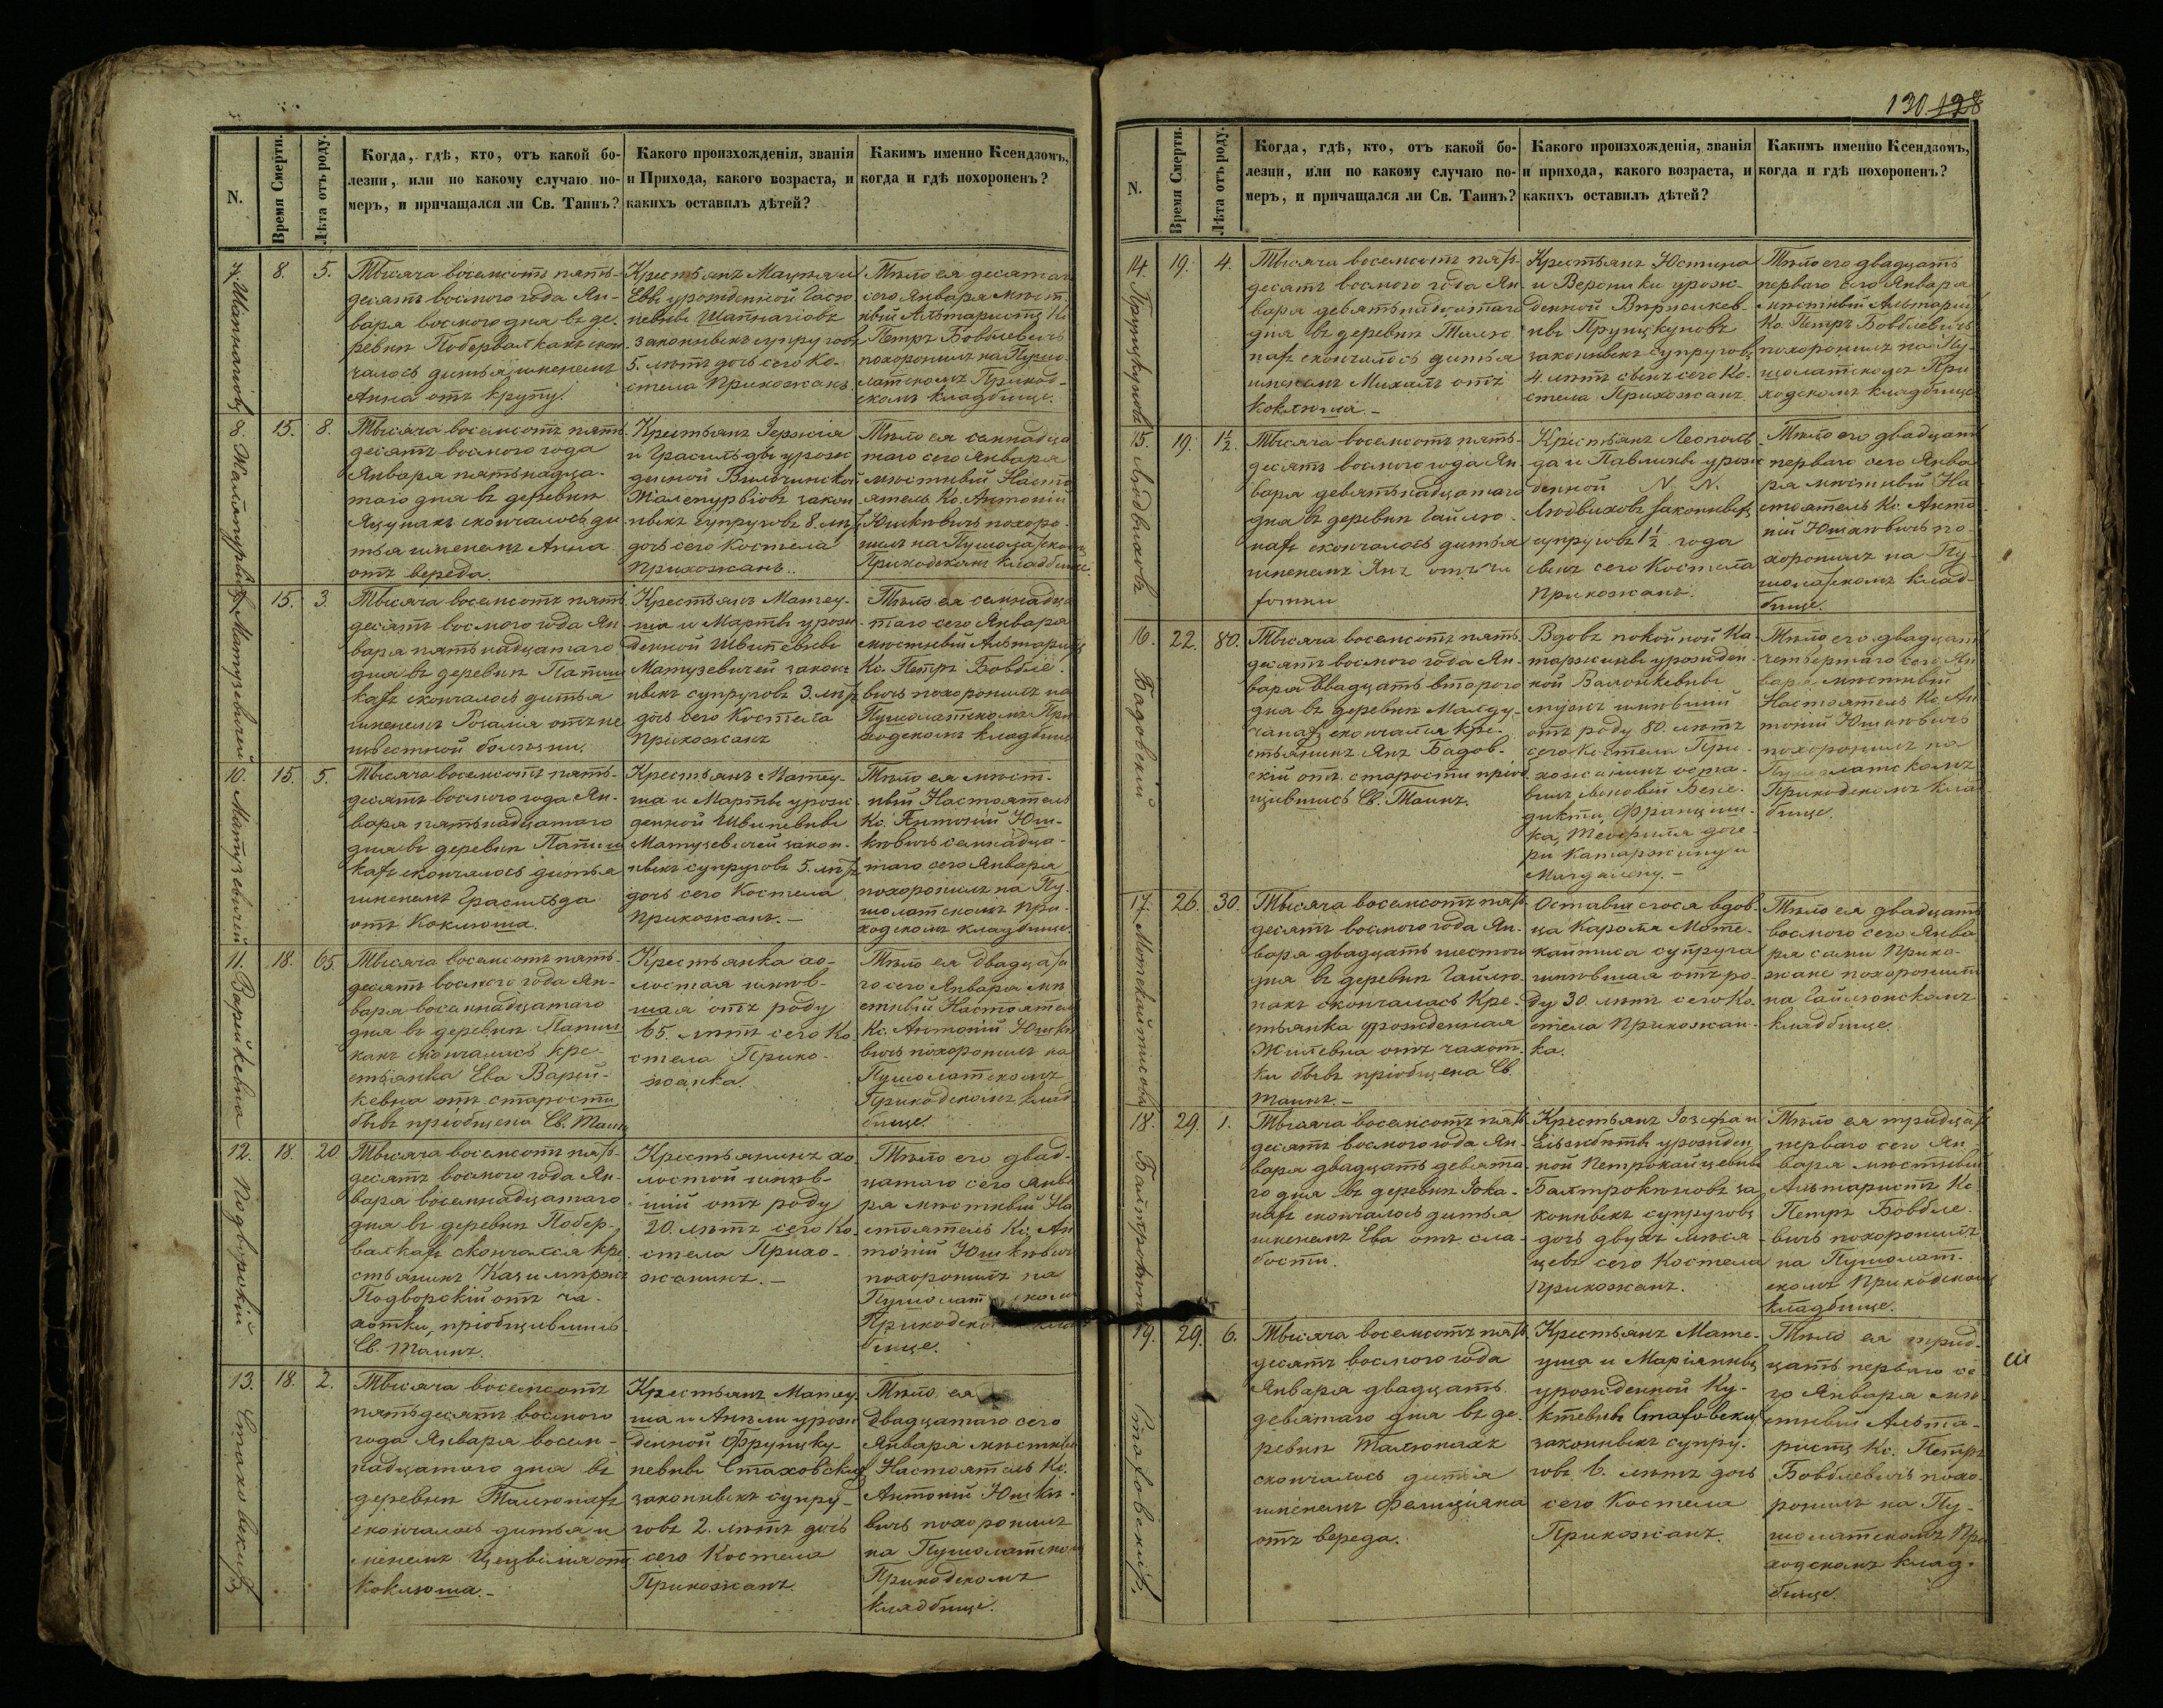 130 128
N.
Время Смерти.
Лѣта отъ роду.
Когда, гдѣ, кто, отъ какой бо-
лезни, или по какому случаю по-
меръ, и причащался ли Св. Таинъ?
Какого произхожденія, званія
и Прихода, какого возраста, и
какихъ оставилъ дѣтей?
Какимъ именно Ксендзомъ,
когда и гдѣ похороненъ?
8.
5.
Тысяча восемсотъ пять-
десятъ восмого года Ян-
варя восмого дня въ де-
ревни
чалось дитя именемъ
Анна отъ крупу.
Крестьянъ
Евы урожденной
законныхъ супруговъ
5. лѣтъ дочь сего Ко-
стела Прихожанъ.
Тѣло ея десятаго
сего Января мѣст-
ный Альтаристъ Кс.
Петръ Бовблевичъ
похоронилъ на Пушо-
латскомъ Приход-
скомъ кладбище.
8.
15.
8.
Тысяча восемсотъ пять
десятъ восмого года
Января пятьнадца-
таго дня въ деревни
скончалось ди
тя именемъ Анна
отъ вереда.
Крестьянъ
и Грасильды урож
денной
закон
ныхъ супруговъ 8. лѣтъ
дочь сего Костела
Прихожанъ.
Тѣло ея семнадца
таго сего Января
мѣстный Насто
ятель Кс. Антоній
Юшкѣвичъ похоро-
нилъ на Пушолатскомъ
Приходскомъ кладбище.
Матузевичей
15.
3.
Тысяча восемсотъ пять
десятъ восмого года Ян
варя пятьнадцатаго
дня въ деревни Папиш
кахъ скончалось дитя
именемъ Розалія отъ не
извѣстной болѣзни.
Крестьянъ Матеу-
ша и Марты урож
денной
Матузевичей закон
ныхъ супруговъ 3. лѣтъ
дочь сего Костела
Прихожанъ
Тѣло ея семнадца
таго сего Января
мѣстный Альтаристъ
Кс. Петръ Бовбле-
вичъ похоронилъ на
Пушолатскомъ При
ходскомъ кладбище
10. Матузевичей
15.
5.
Тысяча восемсотъ пять-
десятъ восмого года Ян-
варя пятьнадцатаго
дня въ деревни Папиш
кахъ скончалось дитя
именемъ Грасильда
отъ Коклюша.
Крестьянъ Матеу-
ша и Марты урож-
денной
Матузевичей закон-
ныхъ супруговъ 5. лѣтъ
дочь сего Костела
Прихожанъ. –
Тѣло ея мѣст-
ный Настоятель
Кс. Антоній Юш-
кѣвичъ семнадца-
таго сего Января
похоронилъ на Пу-
шолатскомъ При-
ходскомъ кладбище.
11. Варейкевна
18.
65.
Тысяча восемсотъ пять-
десятъ восмого года Ян-
варя восемнадцатаго
дня въ деревни Папиш
кахъ скончалась кре-
стьянка Ева Варей-
кевна отъ старости
бывъ пріобщена Св. Таинъ
Крестьянка хо-
лостая имѣв-
шая отъ роду
65. лѣтъ сего Ко
стела Прихо-
жанка.
Тѣло ея двадцата
го сего Января мѣ
стный Настоятель
Кс. Антоній Юшкѣ
вичъ похоронилъ на
Пушолатскомъ
Приходскомъ клад
бище.
12. Подворскій
18.
20
Тысяча восемсотъ пять-
десятъ восмого года Ян-
варя восемнадцатаго
дня въ деревни Побер-
скончался кре
стьянинъ Казимиръ
Подворскій отъ ча-
хотки, пріобщившись
Св. Таинъ.
Крестьянинъ хо-
лостой имѣв-
шій отъ роду
20. лѣтъ сего Ко-
стела Прихо-
жанинъ. –
Тѣло его двад-
цатаго сего Янва
ря мѣстный На
стоятель Кс. Ан
тоній Юшкѣвичъ
похоронилъ на
Пушолатскомъ
Приходско клад
бище.
13. Стаховскихъ
18.
2.
Тысяча восемсотъ
пятьдесятъ восмого
года Января восем-
надцатаго дня въ
деревни Талюнахъ
скончалось дитя и
менемъ Цецылія отъ
Коклюша. –
Крестьянъ Матеу
ша и Анели урож
денной Прунцку-
невны Стаховскихъ
законныхъ супру-
говъ 2. лѣтъ дочь
сего Костела
Прихожанъ.
Тѣло ея
двадцатаго сего
Января мѣстный
Настоятель Кс.
Антоній Юшкѣ-
вичъ похоронилъ
на Пушолатском
Приходскомъ
кладбище.
N.
Время Смерти.
Лѣта отъ роду.
Когда, гдѣ, кто, отъ какой бо-
лезни, или по какому случаю по-
меръ, и причащался ли Св. Таинъ?
Какого произхожденія, званія
и прихода, какого возраста, и
какихъ оставилъ дѣтей?
Какимъ именно Ксендзомъ,
когда и гдѣ похороненъ?
14. Прунцкуновъ
19.
4.
Тысяча восемсотъ пять-
десятъ восмого года Ян
варя девятьнадцатаго
дня въ деревни Талю
нахъ скончалось дитя
именемъ Михалъ отъ
Коклюша. –
Крестьянъ Юстина
и Вероники урож-
денной
Прунцкуновъ
законныхъ супруговъ
4. лѣтъ сынъ сего Ко-
стела Прихожанъ.
Тѣло его двадцать
перваго сего Января
мѣстный Альтаристъ
Кс. Петръ Бовблевичъ
похоронилъ на Пу-
шолатскомъ При
ходскомъ кладбище
15. Людвиковъ
19.
1½.
Тысяча восемсотъ пять-
десятъ восмого года Ян
варя девятьнадцатаго
дня въ деревни Гайлю-
нахъ скончалось дитя
именемъ Янъ отъ чи
хотки
Крестьянъ Леополь
да и Павлины урож
денной N. N.
Людвиковъ законныхъ
супруговъ 1½ года
сынъ сего Костела
Прихожанъ.
Тѣло его двадцать
перваго сего Янва
ря мѣстный На
стоятель Кс. Анто
ній Юшкѣвичъ по-
хоронилъ на Пу-
шолатскомъ клад-
бище.
16. Бадовскій
22.
80.
Тысяча восемсотъ пять
десятъ восмого года Ян-
варя двадцать второго
дня въ деревни
скончался кре-
стьянинъ Янъ Бадов-
скій отъ старости пріоб
щившись Св. Таинъ.
Вдовъ покойной Ка
таржины урожден
ной
мужъ имѣвшій
отъ роду 80. лѣтъ
сего Костела При-
хожанинъ оста-
вилъ сыновей Бене-
дикта, Францыш-
ка, Теофиля доче-
ри Катаржину и
Магдалену. –
Тѣло его двадцать
четвертаго сего Ян
варя мѣстный
Настоятель Кс. Ан
тоній Юшкѣвичъ
похоронилъ на
Пушолатскомъ
Приходскомъ клад
бище.
17.
26.
30.
Тысяча восемсотъ пять
десятъ восмого года Ян-
варя двадцать шестого
дня въ деревни Гайлю-
нахъ скончалась Кре-
стьянка урожденная
Жилевна отъ чахот-
ки бывъ пріобщена Св.
Таинъ. –
Оставшегося вдов-
ца Кароля Моте-
супруга
имѣвшая отъ ро-
ду 30. лѣтъ сего Ко-
стела Прихожан-
ка.
Тѣло ея двадцать
восмого сего Янва
ря сами Прихо-
жане похоронили
на Гайлюнскомъ
кладбище.
18.
29.
1.
Тысяча восемсотъ пять
десятъ восмого года Ян-
варя двадцать девята
го дня въ деревни Іока-
нахъ скончалось дитя
именемъ Ева отъ сла-
бости.
Крестьянъ Іозефа и
Ельжбеты урожден
ной
за
конныхъ супруговъ
дочь двухъ мѣся
цевъ сего Костела
Прихожанъ.
Тѣло ея тридцать
перваго сего Ян-
варя мѣстный
Альтаристъ Кс.
Петръ Бовбле-
вичъ похоронилъ
на Пушолат-
скомъ Приходскомъ
кладбище.
19. Стаховскихъ.
29.
6.
Тысяча восемсотъ пять
десятъ восмого года
Января двадцать
девятаго дня въ де-
ревни Талюнахъ
скончалось дитя
именемъ Фелиціяна
отъ вереда.
Крестьянъ Мате-
уша и Маріянны
урожденной Ку-
ктевны Стаховскихъ
законныхъ супру-
говъ 6. лѣтъ дочь
сего Костела
Прихожанъ.
Тѣло ея трид-
цать перваго се
го Января мѣ
стный Альта-
ристъ Кс. Петръ
Бовблевичъ похо-
ронилъ на Пу-
шолатскомъ При
ходскомъ клад-
бище.